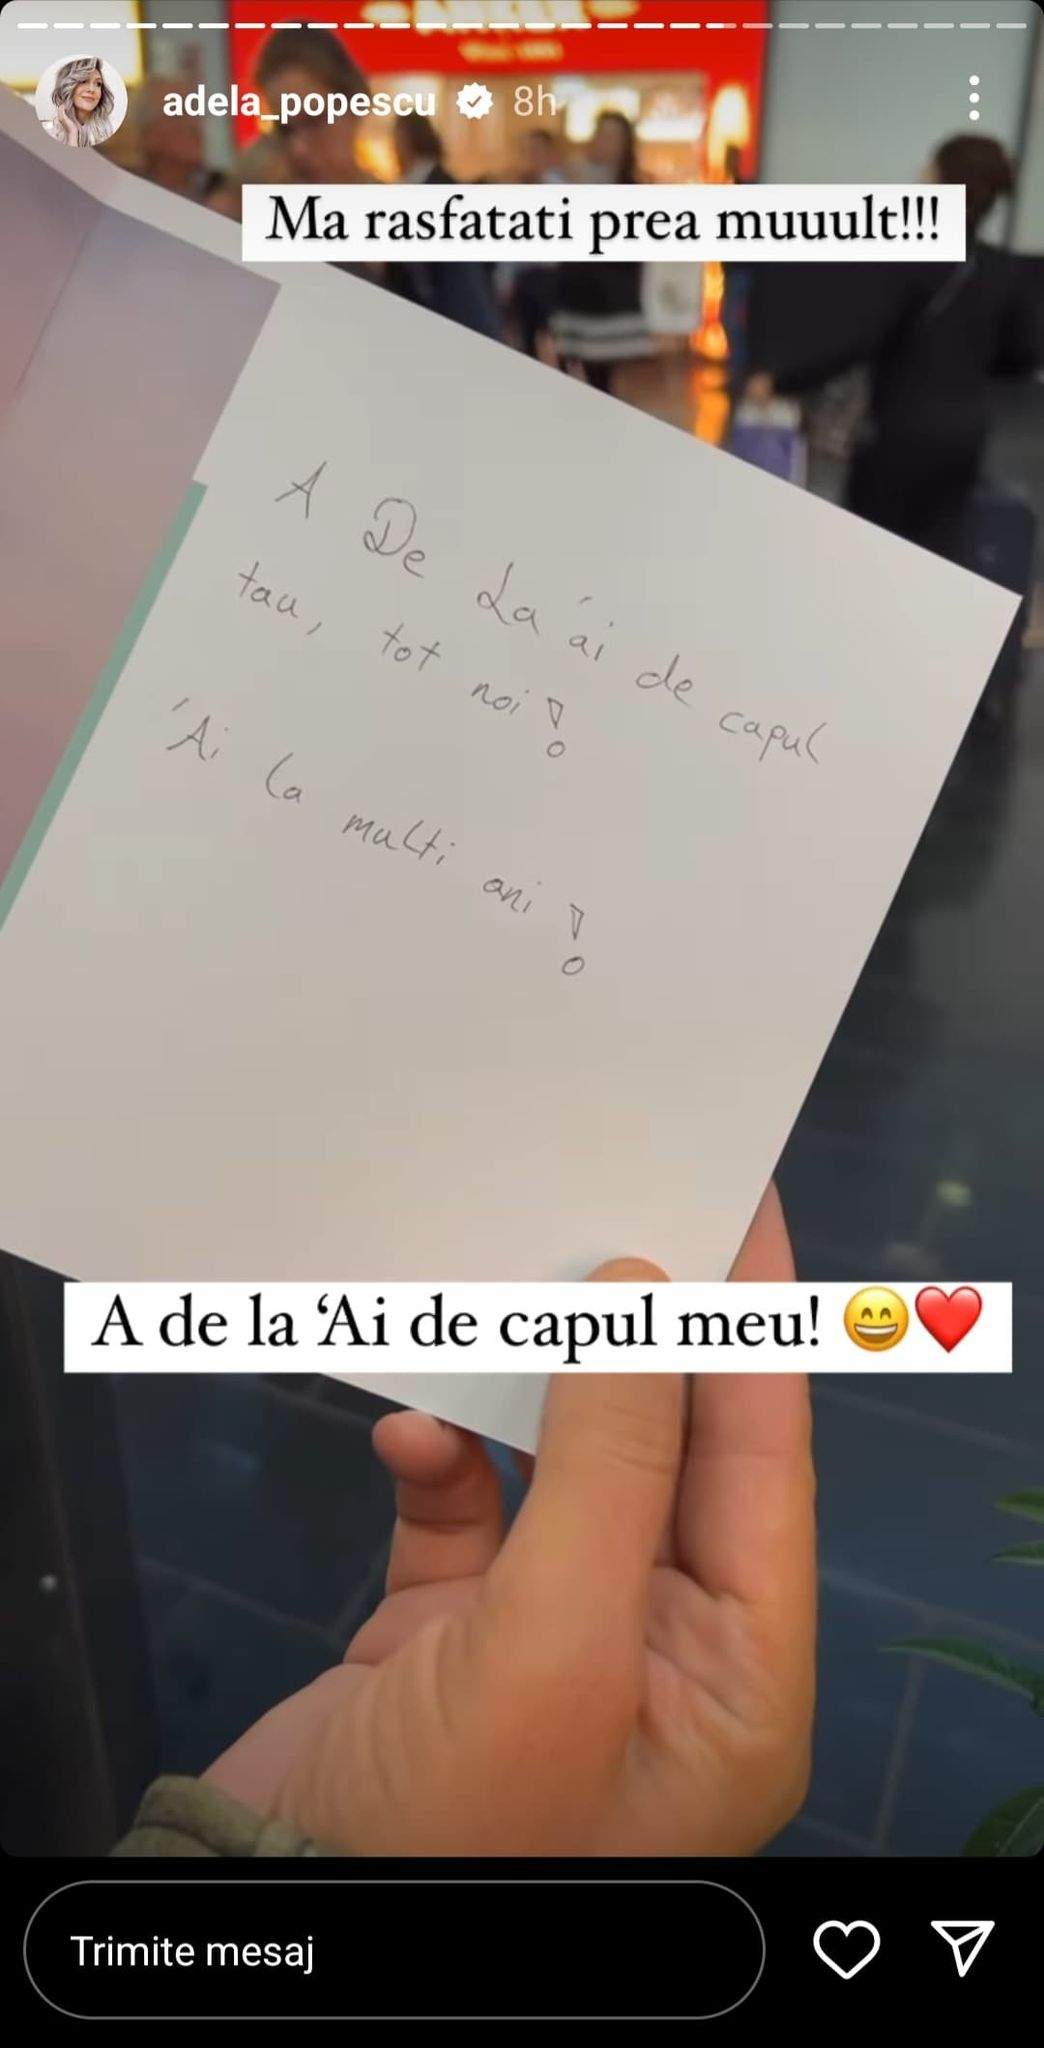 adela_popescu 8h
Ma rasfatati prea muuult!!!
A De La 'ai de capul
tau, tot noi!
'Ai la multi ani!
A de la ‘Ai de capul meu! 😄❤️
Trimite mesaj